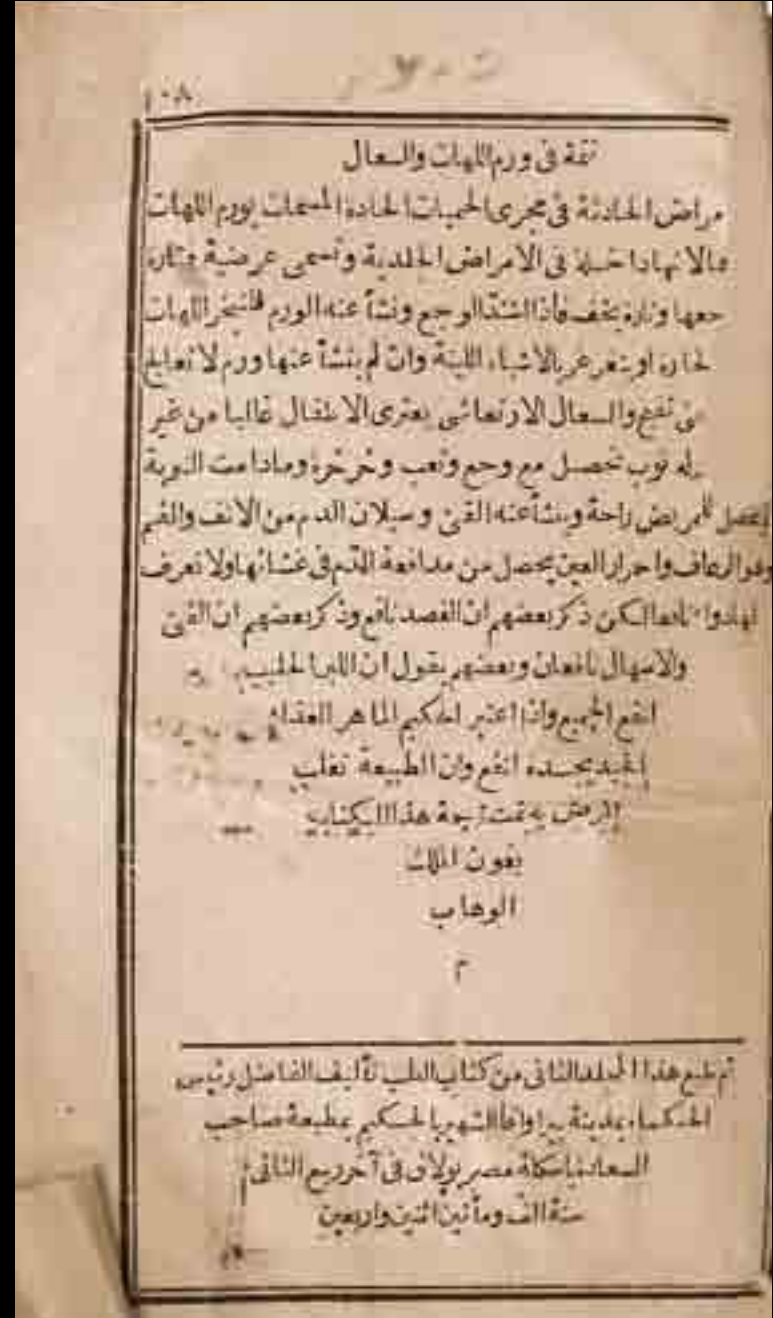 ١٠٨
تتمة فى ورم اللهات والسعال
مراض الحادثة فى مجرى الحميات الحادة المسمات بورم اللهات
داخلة فى الامراض الجلدية وتسمى عرضية وتارة
جعها وتارة يخف فأذا اشتد الوجع ونشأ عنه الورم اللهات
لحارة او يتغرغر بالاشياء اللينة وان لم ينشأ عنها ورم لا تعالج
والسعال الارتعاشى يعترى الاطفال غالبا من غير
وله نوب تحصل مع وجع وتعب وخرخرة ومادامت النوبة
للمريض راحة وينشأ عنه القئ وسيلان الدم من الانف والفم
وهو الرعاف واحرار العين يحصل من مدافعة الدم فى غشائها ولا تعرف
لها دواء نافعا لكن ذكر بعضهم ان الفصد نافع وذكر بعضهم ان القئ
والاسهال نافعان وبعضهم يقول ان اللبن الحليب
انفع الجميع واذا اعتبر الحكيم الماهر الغذاء
الجيد يجده انفع وان الطبيعة تغلب
المرض به تمت ترجمة هذا الكتاب
بعون الملك
الوهاب
م
تم طبع هذا المجلد الثانى من كتاب الطب تأليف الفاضل رئيس
الحكماء بمدينة الشهير بالحكيم بمطبعة صاحب
السعادة مصر بولاق فى آخر ربيع الثانى
سنة الف ومأتين اثنين واربعين